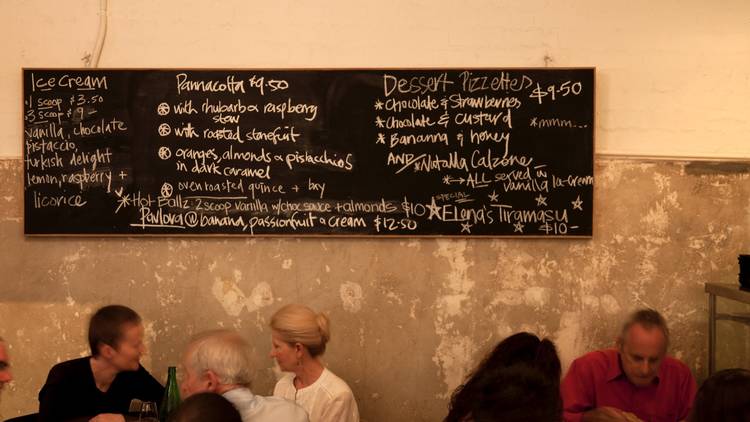 Ice Cream
1 scoop $3.50
3 scoop $9-
vanilla, chocolate
pistaccio,
turkish delight
lemon, raspberry +
licorice
Pannacotta $9.50
with rhubarb & raspberry
stew
with roasted stonefruit
oranges, almonds & pistachios
in dark caramel
oven toasted quince + bay
*Hot Ballz: 2 scoop vanilla w/choc sauce + almonds $10
Pavlova @ banana, passionfruit & cream $12.50
Dessert Pizzettes $9.50
*Chocolate & Strawberries
*Chocolate & custard
*mmm...
*Bananna & honey
AND *Natalia Calzone
*→ALL served w
vanilla Ice-cream
SPECIAL
Elena's Tiramasu
$10-